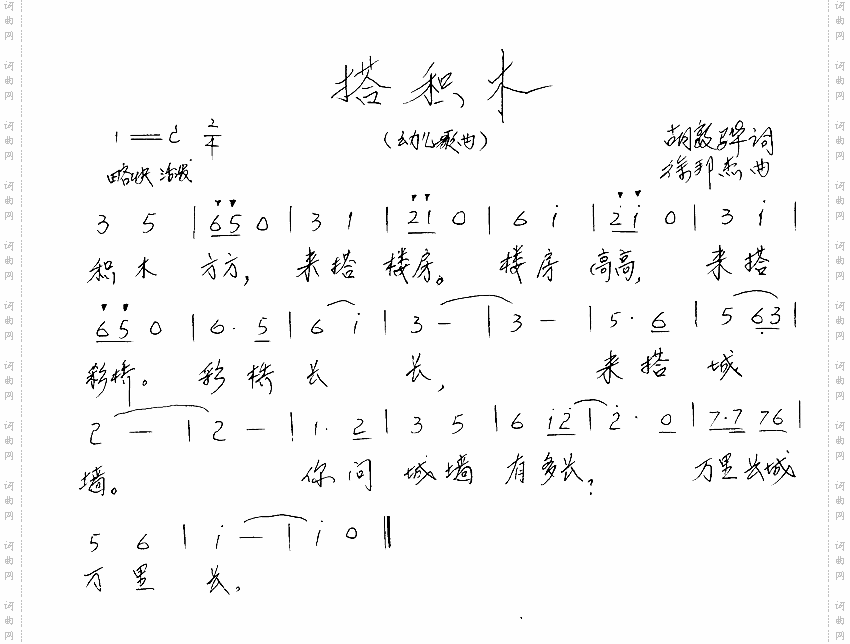 搭积木
1=C 2/4
(幼儿歌曲)
胡敦骅词
略快 活泼
徐邦杰曲
3 5 | 6 5 0 | 3 1 | 2 1 0 | 6 i | 2̇ i 0 | 3 i |
积木 方方, 来搭 楼房。 楼房 高高, 来搭
6 5 0 | 6. 5 | 6 i | 3 — | 3 — | 5. 6 | 5 6 3 |
彩桥。 彩桥 长 长, 来搭 城
2 — | 2 — | 1. 2 | 3 5 | 6 i 2̇ | 2̇. 0 | 7.7 76 |
墙。 你问 城墙 有多长? 万里长城
5 6 | i — | i 0 ‖
万里 长。
词曲网